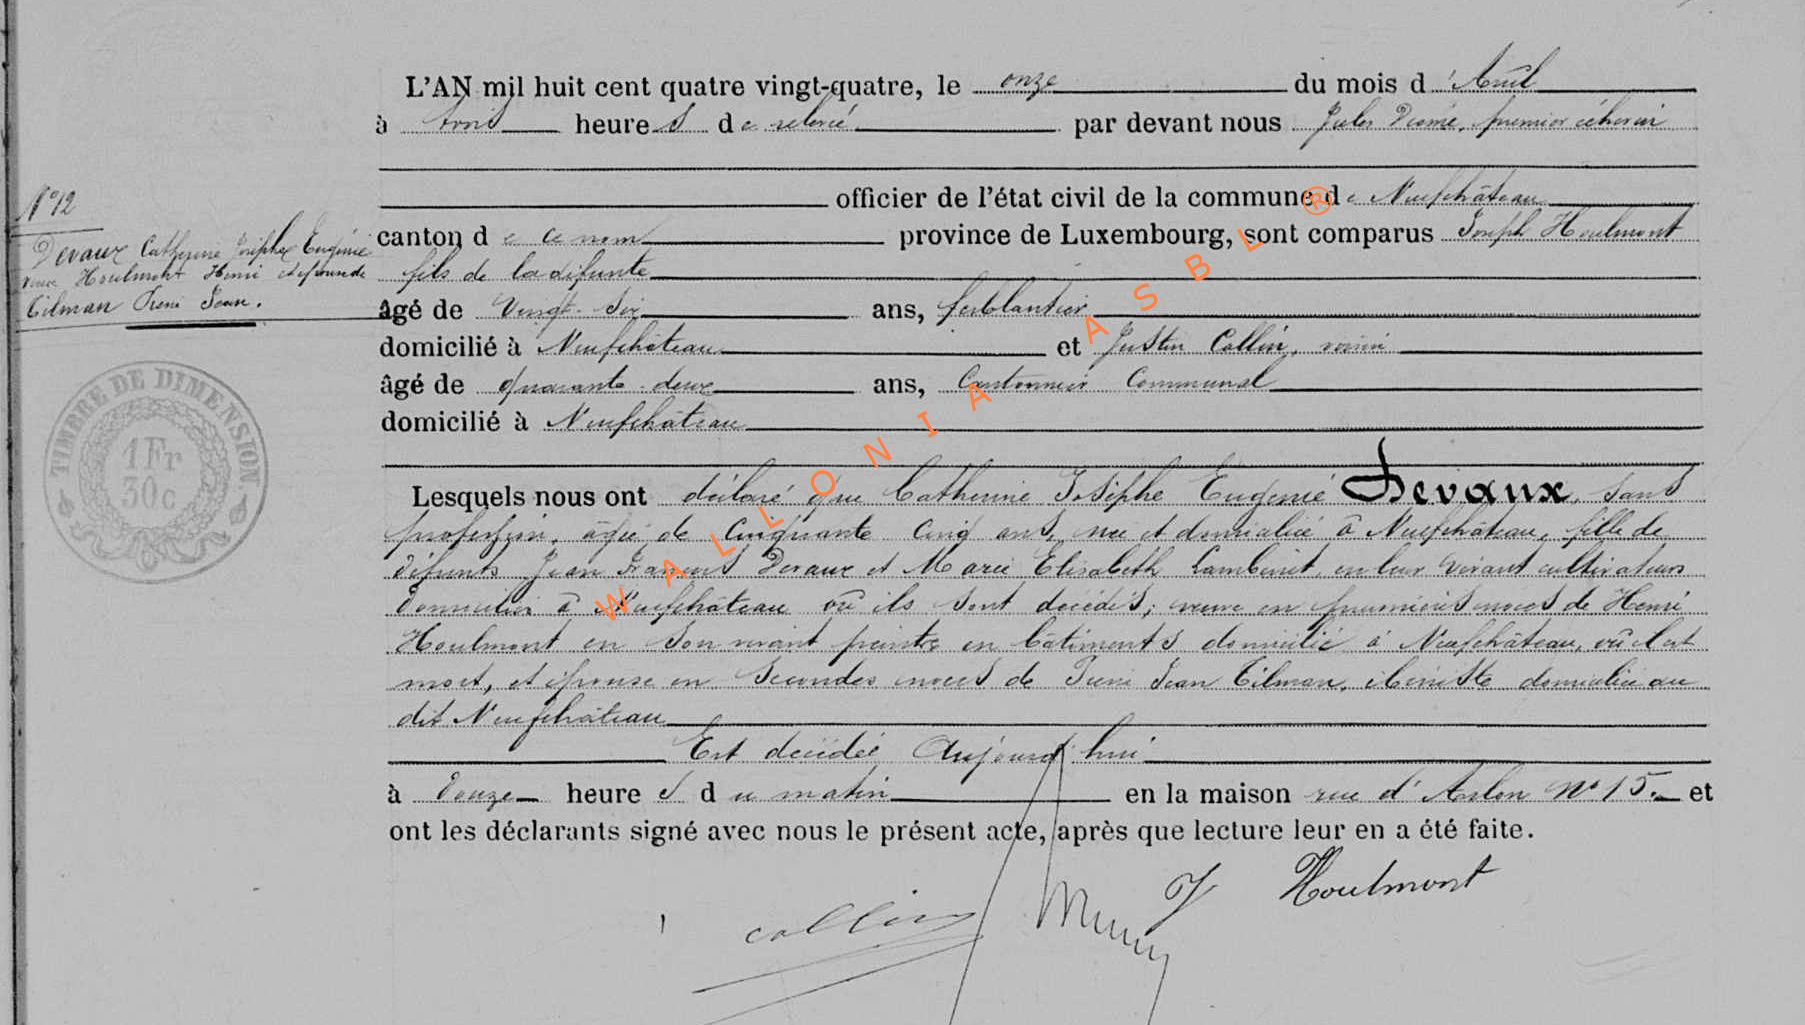 L'AN mil huit cent quatre vingt-quatre, le onze du mois d'Avril
à trois heures de relevé par devant nous Jules premier échevin
officier de l'état civil de la commune de Neufchâteau
N° 12
Devaux Catherine Josèphe Eugénie
veuve Houlmont Henri et épouse de
Tilman Pierre Jean.
canton de ce nom province de Luxembourg, sont comparus Joseph Houlmont
fils de la défunte
âgé de vingt-six ans, ferblantier
domicilié à Neufchâteau et Justin Collin, voisin
âgé de quarante-deux ans, Cantonnier Communal
domicilié à Neufchâteau
TIMBRE DE DIMENSION
1 Fr
30 c
Lesquels nous ont déclaré que Catherine Josèphe Eugénie Devaux, sans
profession, âgée de cinquante cinq ans, née et domiciliée à Neufchâteau, fille de
défunts Jean François Devaux et Marie Elisabeth Lambinet, en leur vivant cultivateurs
domiciliés à Neufchâteau où ils sont décédés; veuve en premières noces de Henri
Houlmont en son vivant peintre en bâtiments domicilié à Neufchâteau, où il est
mort, et épouse en secondes noces de Pierre Jean Tilman, ébéniste domicilié au
dit Neufchâteau
Est décédée Aujourd'hui
à douze heures du matin en la maison rue d'Arlon N° 15. et
ont les déclarants signé avec nous le présent acte, après que lecture leur en a été faite.
collin
J Houlmont
WALLONIA ASBL ®